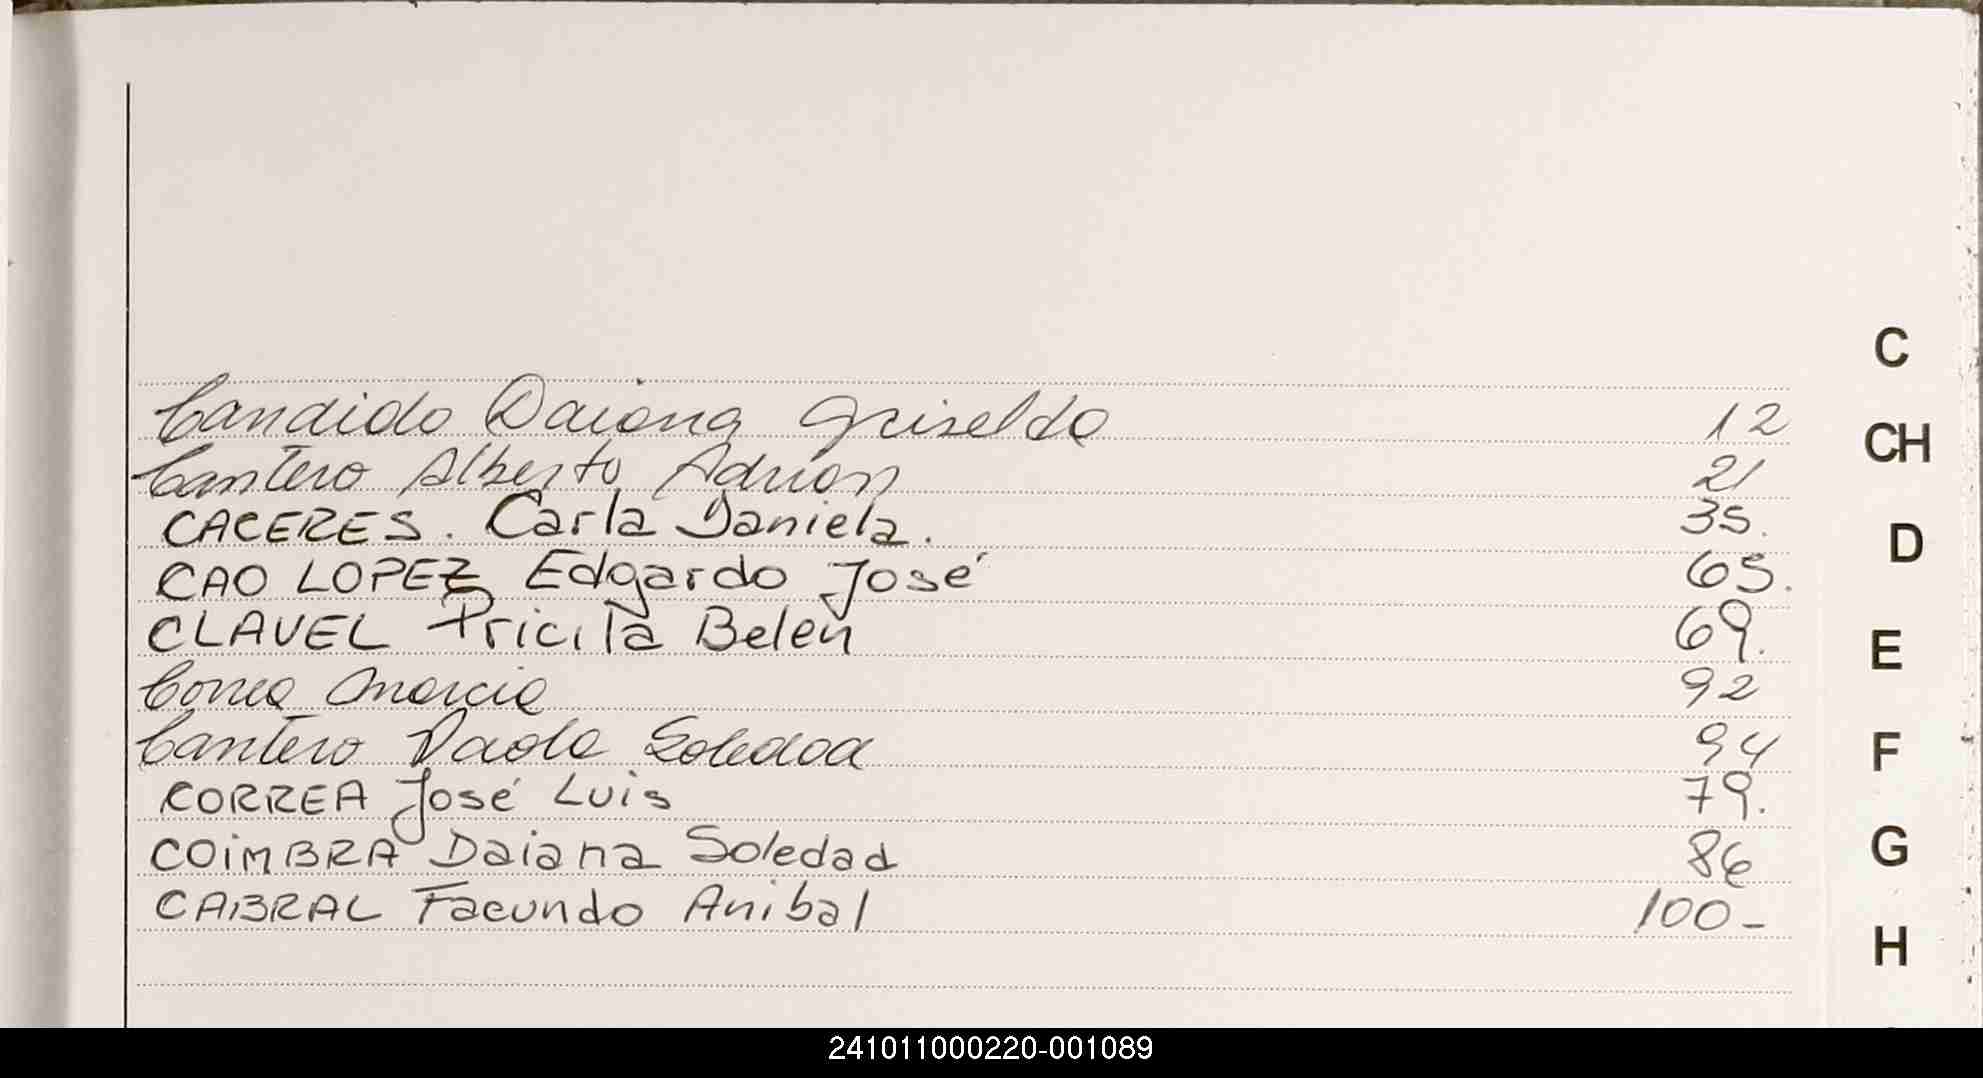 Candido Daiana Griselda 12
Cantero Alberto Adrian 21
CACERES. Carla Daniela. 35.
CAO LOPEZ Edgardo José 65.
CLAVEL Pricila Belen 69.
Correa Marcia 92
Cantero Paola Soledad 94
CORREA José Luis 79.
COiMBRA Daiana Soledad 86
CABRAL Facundo Anibal 100-
C
CH
D
E
F
G
H
241011000220-001089